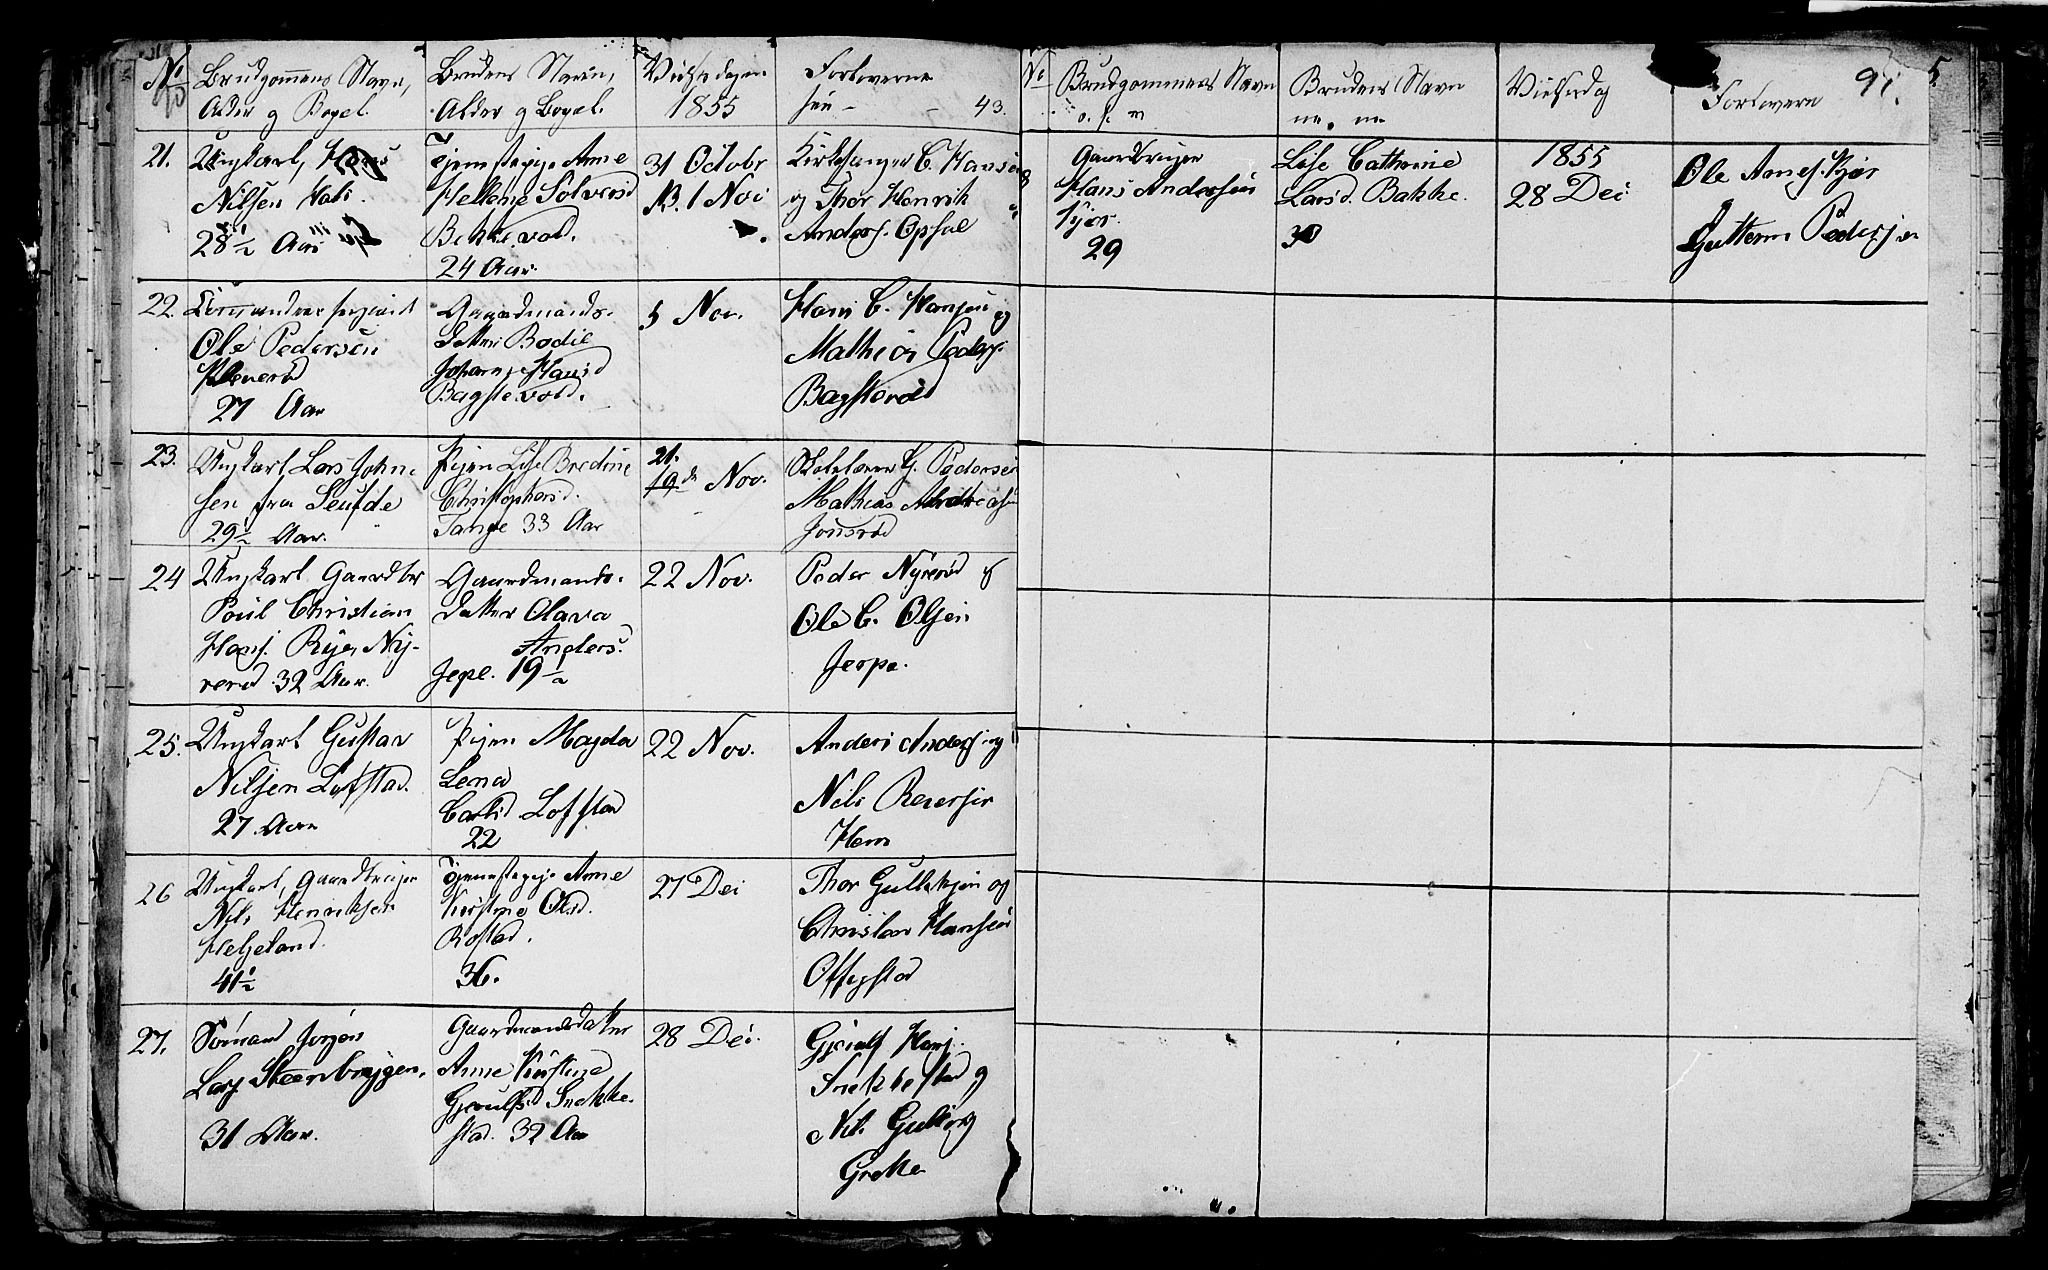 No
Brudgommens Navn,
Alder og Bopel.
Brudens Navn,
Alder og Bopel.
Vielsesdagen
1855
Forloverne
43.
21.
Ungkarl, Hans
Nilsen
28 1/2 Aar
Tjenestepige Anne
Hellene Solversd
Bekkevold.
24 Aar.
31 Octobr
1 Nov
Kirkesanger C. Hansen
og Thor Henrik
Anders. Opsal
22.
Ole Pedersen
27 Aar
Gaardmands-
Datter Bodil
Hansd
Bagstevold.
5 Nov.
Hans C. Hansen og
Mathias Peders.
23.
Ungkarl Lars Johne
sen fra
29 1/2 Aar.
Pigen Lise Bredine
Christophersd.
Tange 33 Aar
21.
19de Nov.
Skolelærer G. Pedersen
Mathias
Jonsrød
24
Ungkarl Gaardbr
Poul Christian
Hans. Rije, Ny-
rerød. 32 Aar.
Gaardmands-
datter Olava
Anders.
19 1/2
22 Nov.
Peder Nyrerød og
Ole C. Olsen
Jerpe.
25.
Ungkarl Gustav
Nilsen Lofstad.
27 Aar
Pigen Magda
Lena
Carlsd Lofstad
22
22 Nov.
Anders Anders. og
Nils
Hem
26
Ungkarl, Gaardbruger
Nils Henriksen
Helgeland.
41 1/2
Tjenestepige Anne
Kirstine Olsd.
Rostad.
36.
27 Dec
Thor Gulliksen og
Christian Hansen
27.
Sømand Jørgen
Lars. Steenbryggen.
31 Aar.
Gaardmandsdatter
Anne Kirstine
Gjerulfsd Snekke-
stad. 32 Aar
28 Dec.
Gjerulf Hans.
Snekkestad og
Nils
No
Brudgommens Navn
o. s. v
Brudens Navn
Vielsesdag
Forlovere
91.
Gaardbruger
Hans Andersen
Kjær.
29
Lise Cathrine
Larsd. Bakke.
30
1855
28 Dec
Ole Arnes. Kjær
Guttorm Pedersen